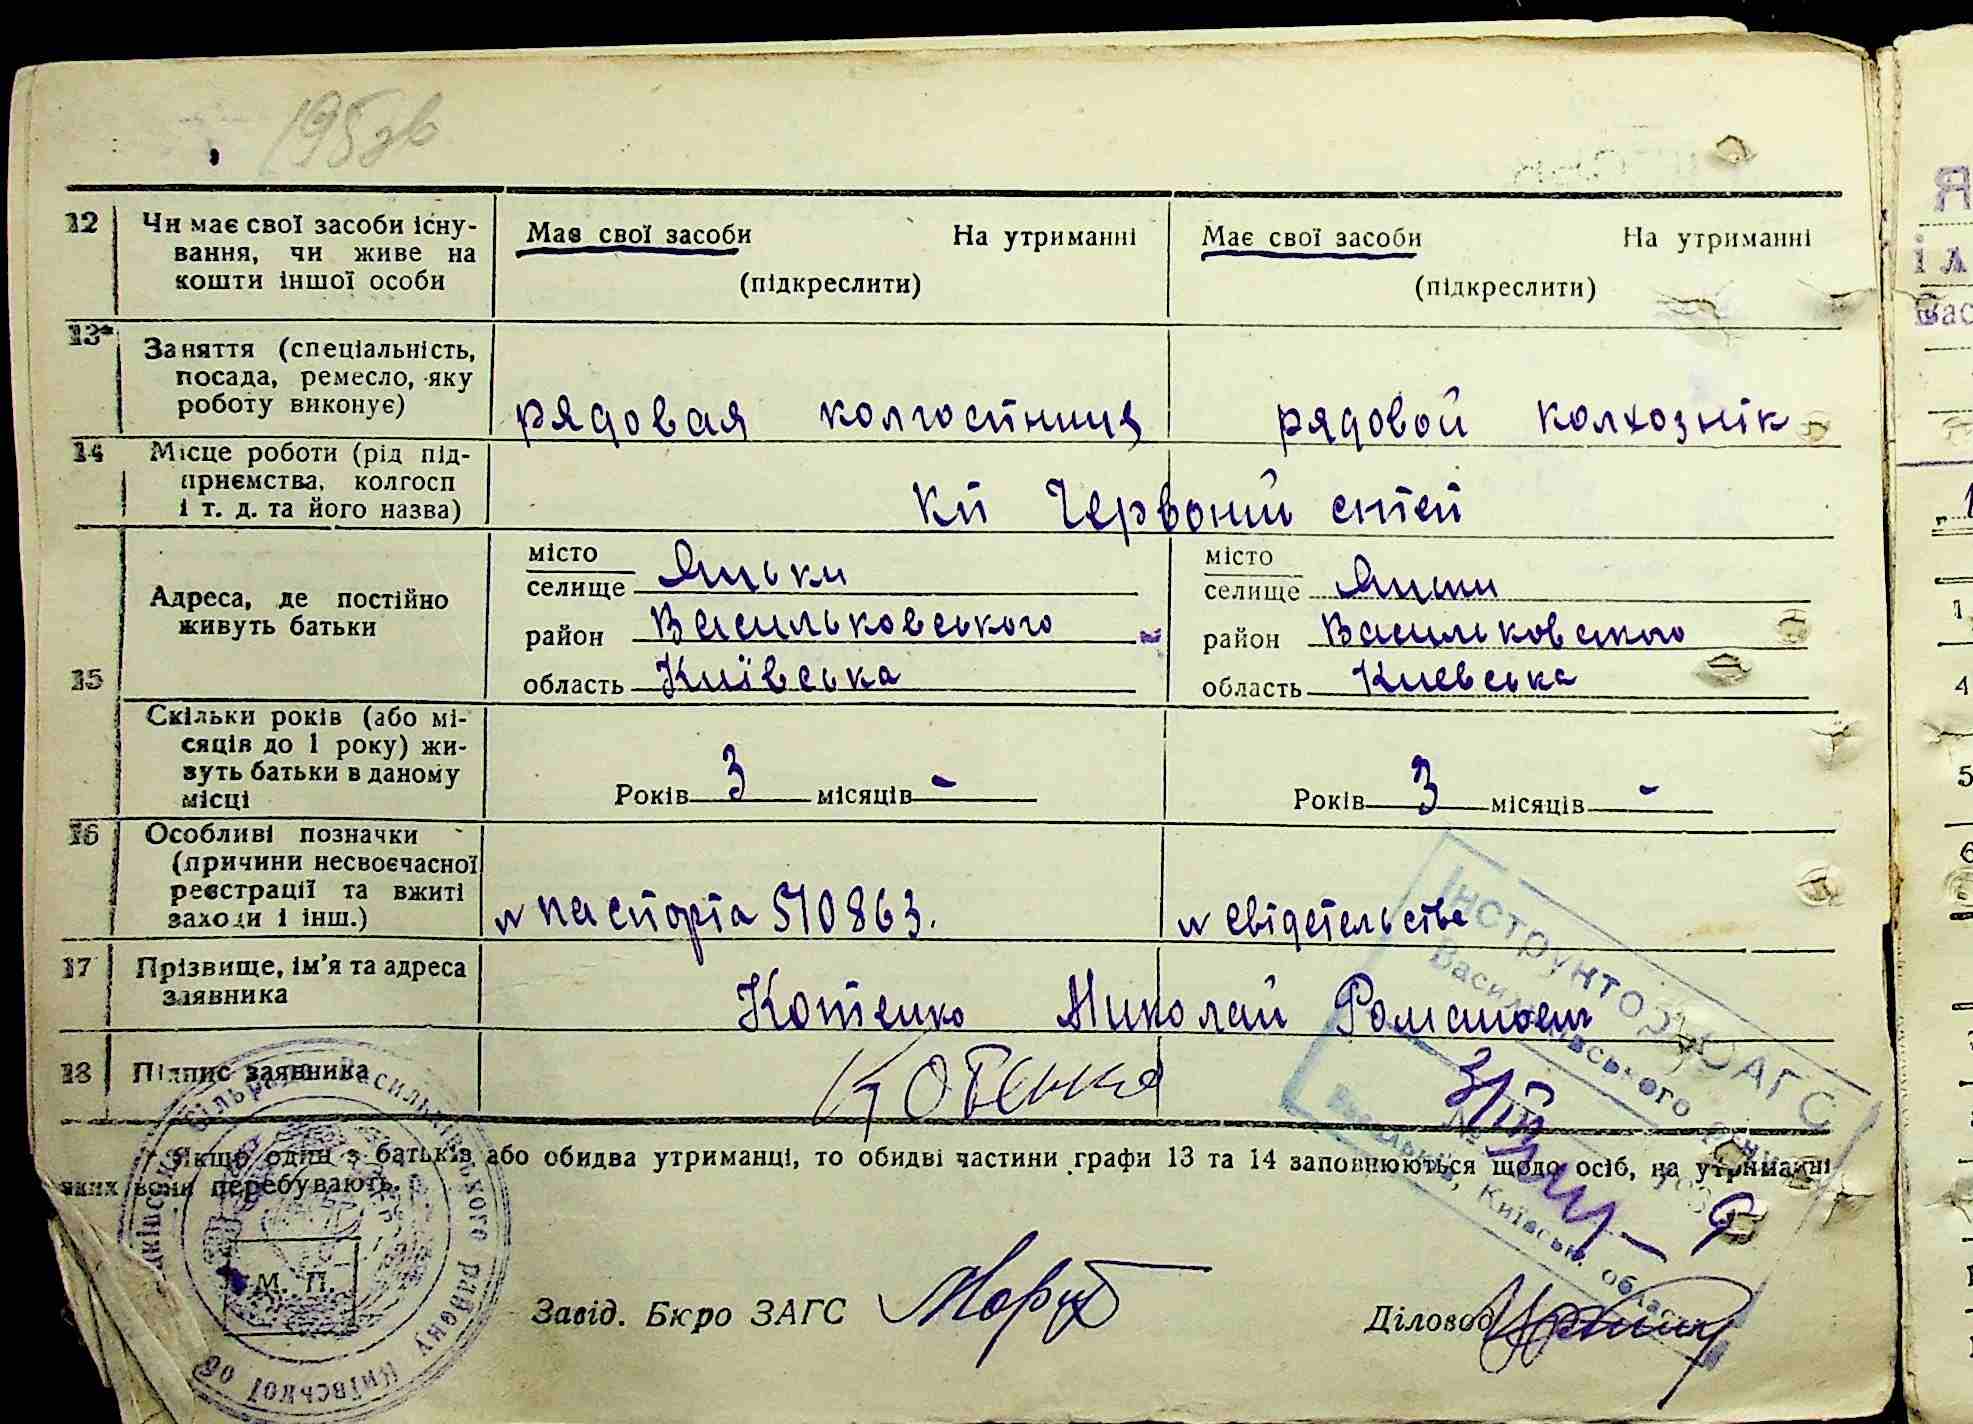 195зв
12 Чи має свої засоби існу-
вання, чи живе на
кошти іншої особи
Має свої засоби На утриманні
(підкреслити)
Має свої засоби На утриманні
(підкреслити)
13* Заняття (спеціальність,
посада, ремесло, яку
роботу виконує)
рядовая колгоспниця
рядовой колхознік
14 Місце роботи (рід під-
приємства, колгосп
і т. д. та його назва)
Кп Червоний степ
15 Адреса, де постійно
живуть батьки
місто
селище Яцьки
район Васильковського
область Київська
місто
селище Яцьки
район Васильковского
область Киевська
Скільки років (або мі-
сяців до 1 року) жи-
вуть батьки в даному
місці
Років 3 місяців -
Років 3 місяців -
16 Особливі позначки
(причини несвоєчасної
реєстрації та вжиті
заходи і інш.)
№ паспорта 510863.
№ свідетельства
17 Прізвище, ім'я та адреса
заявника
Котенко Николай Романович
18 Підпис заявника
Котенко
* Якщо один з батьків або обидва утриманці, то обидві частини графи 13 та 14 заповнюються щодо осіб, на утриманні
яких вони перебувають.
М. П.
Завід. Бюро ЗАГС
Діловод
Інструктор ЗАГС
Васильківського
Васильків, Київськ. област
сільрада Васильківського району Київської об